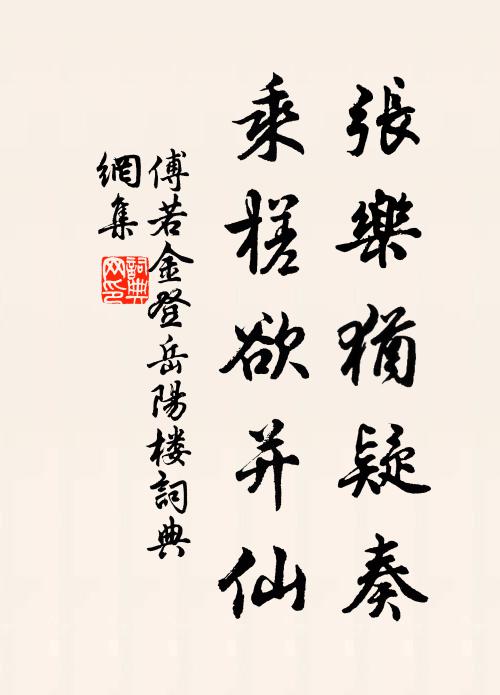 張樂猶疑奏
乘槎欲并仙
傅若金登岳陽楼詞典
網集
詞典網印